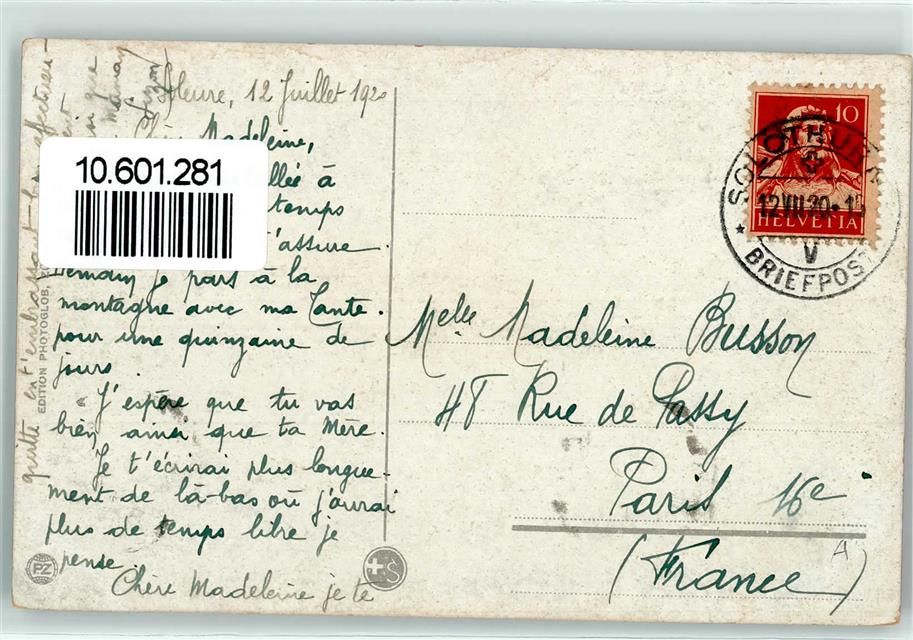 12 Juillet 1920
Chère Madeleine,
10.601.281
à
temps
t'assure.
Demain je pars à la
montagne avec ma Tante.
pour une quinzaine de
jours.
J'espère que tu vas
bien ainsi que ta Mère.
Je t'écrirai plus longue-
ment de là-bas où j'aurai
plus de temps libre je
pense.
Chère Madeleine je te
quitte en t'embrassant
que
maman
Suzon
EDITION PHOTOGLOB,
PZ
S
10
HELVETIA
SOLOTHURN
12.VII.20
V
* BRIEFPOST
Melle Madeleine Busson
48 Rue de Passy
Paris 16e
(France)